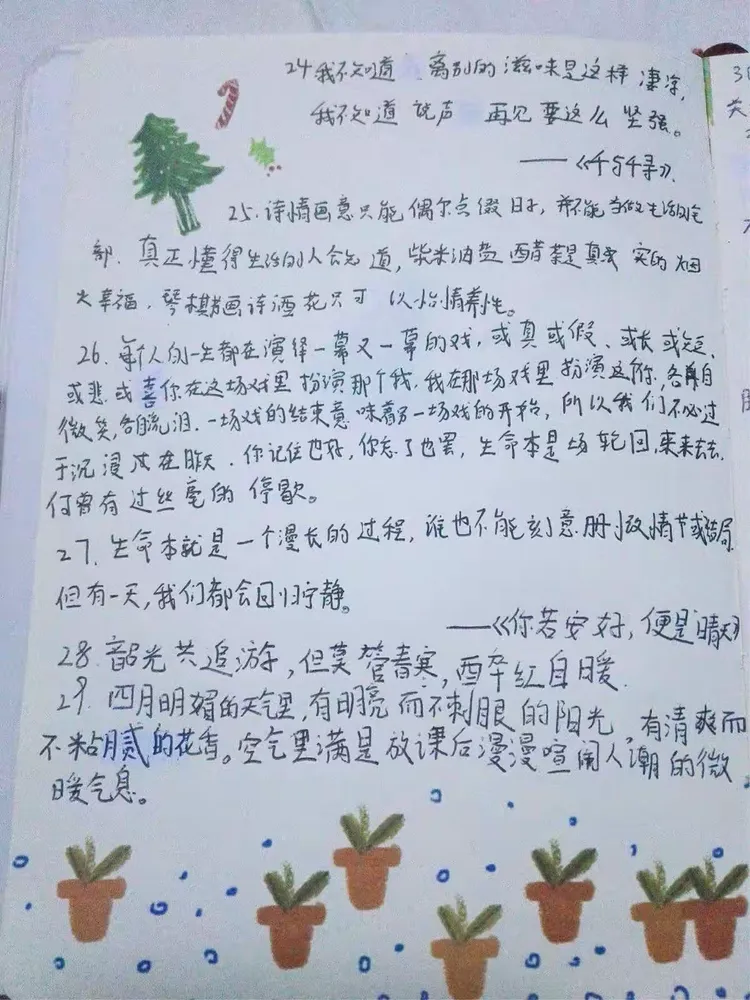 24 我不知道 离别的滋味是这样 凄凉,
我不知道 说声 再见 要这么 坚强。
——《千与千寻》.
25.诗情画意只能 偶尔点缀 日子, 并不能当做生活的全
部. 真正懂得生活的人会知道, 柴米油盐 酱醋茶是真实 实的 烟
火幸福. 琴棋书画诗酒花只可 以怡情养性。
26.每个人的一生都在演绎一幕又一幕的戏, 或真或假、或长或短、
或悲.或喜你在这场戏里 扮演那个我.我在那场戏里 扮演这你,各自
微笑,各自流泪.一场戏的结束意味着另一场戏的开始, 所以我们不必过
于沉浸 在昨天. 你记住也好, 你忘了也罢, 生命本是场 轮回,来来去去.
何曾有过丝毫的停歇。
27.生命本就是一个漫长的过程, 谁也不能刻意删改情节或结局.
但有一天,我们都会回归宁静。
——《你若安好, 便是晴天》
28.韶光共追游, 但莫管春寒, 醉红自暖.
29.四月明媚的天气里,有明亮而不刺眼的阳光, 有清爽而
不粘腻的花香。空气里满是放课后漫漫喧闹人潮的微
暖气息。